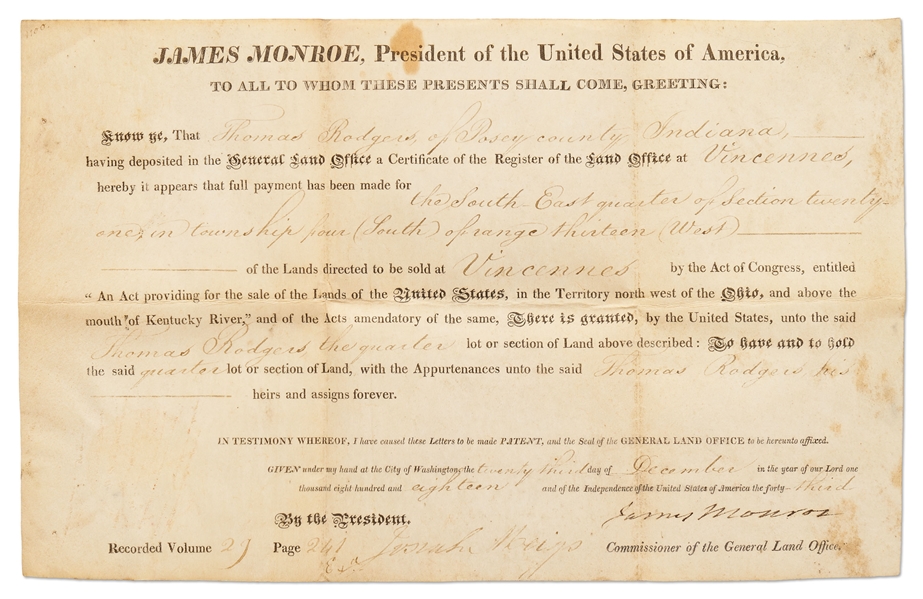 JAMES MONROE, President of the United States of America,
TO ALL TO WHOM THESE PRESENTS SHALL COME, GREETING:
Know ye, That Thomas Rodgers, of Posey county Indiana,
having deposited in the General Land Office a Certificate of the Register of the Land Office at Vincennes,
hereby it appears that full payment has been made for the South East quarter of section twenty-
one, in township four (South) of range thirteen (West)
of the Lands directed to be sold at Vincennes by the Act of Congress, entitled
"An Act providing for the sale of the Lands of the United States, in the Territory north west of the Ohio, and above the
mouth of Kentucky River," and of the Acts amendatory of the same, There is granted, by the United States, unto the said
Thomas Rodgers, the quarter lot or section of Land above described: To have and to hold
the said quarter lot or section of Land, with the Appurtenances unto the said Thomas Rodgers his
heirs and assigns forever.
IN TESTIMONY WHEREOF, I have caused these Letters to be made PATENT, and the Seal of the GENERAL LAND OFFICE to be hereunto affixed.
GIVEN under my hand at the City of Washington, the twenty third day of December in the year of our Lord one
thousand eight hundred and eighteen and of the Independence of the United States of America the forty-third
By the President. James Monroe
Recorded Volume 29 Page 241 Josiah Meigs Commissioner of the General Land Office.